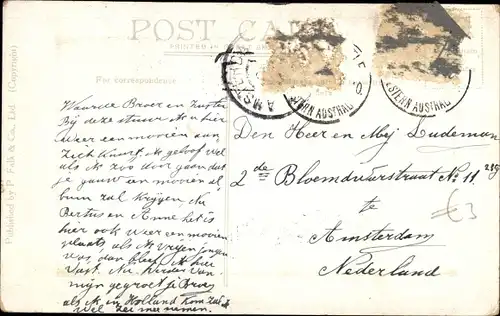 POST CARD
PRINTED IN
For correspondence
AMSTERDAM
STERN AUSTRAL
STERN AUSTRAL
Published by P. Falk & Co., Ltd. (Copyright)
Waarde Broer en Zuster
Bij deze stuur ik u hier
weer een mooien aan-
zicht kaart. Ik geloof wel
als ik zoo door gaan dat
je gauw een mooien al
bum zal krijgen. Nu
Bertus en Anne het is
hier ook weer een mooien
plaats als ik vrijen jongen
was dan bleef ik hier
vast. Nu verder van
mijn gegroet je Broer
als ik in Holland kom zal ik
wel mee nemen.
Den Heer en Mej Ludeman
2de Bloemdwarsstraat No 11
te
Amsterdam
Nederland
€3